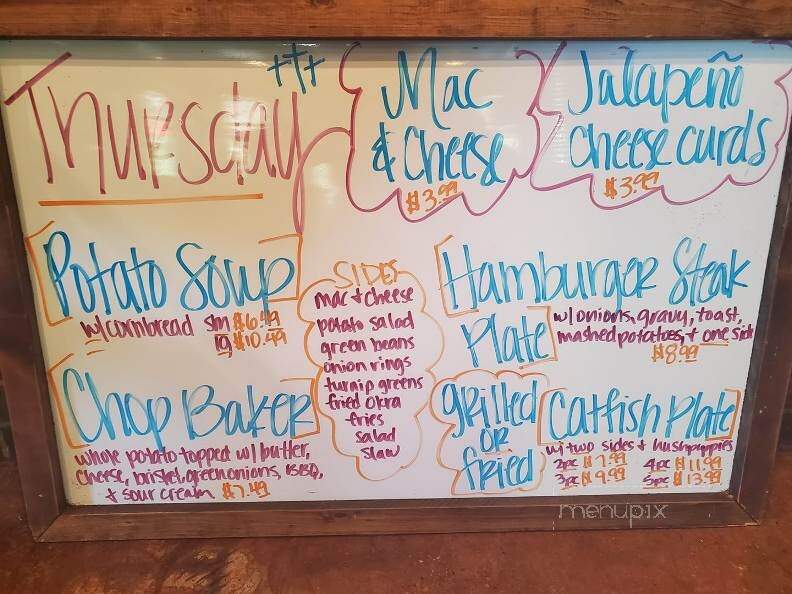 Thursday
Mac
& Cheese
$3.99
Jalapeño
Cheese curds
$3.99
Potato Soup
w/ cornbread sm $6.49
lg $10.49
Chop Baker
whole potato topped w/ butter,
cheese, brisket, green onions, BBQ,
+ sour cream $7.49
SIDES
mac + cheese
potato salad
green beans
onion rings
turnip greens
fried okra
fries
salad
slaw
Hamburger Steak
Plate
w/ onions, gravy, toast,
mashed potatoes, + one side
$8.99
grilled
OR
fried
Catfish Plate
w/ two sides + hushpuppies
2pc $7.99 4pc $11.99
3pc $9.99 5pc $13.99
menupix